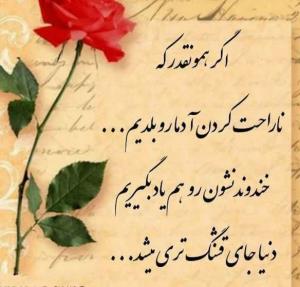 اگر همونقدر که
ناراحت کردن آدما رو بلدیم...
خندوندنشون رو هم یاد بگیریم
دنیا جای قشنگ تری میشد...